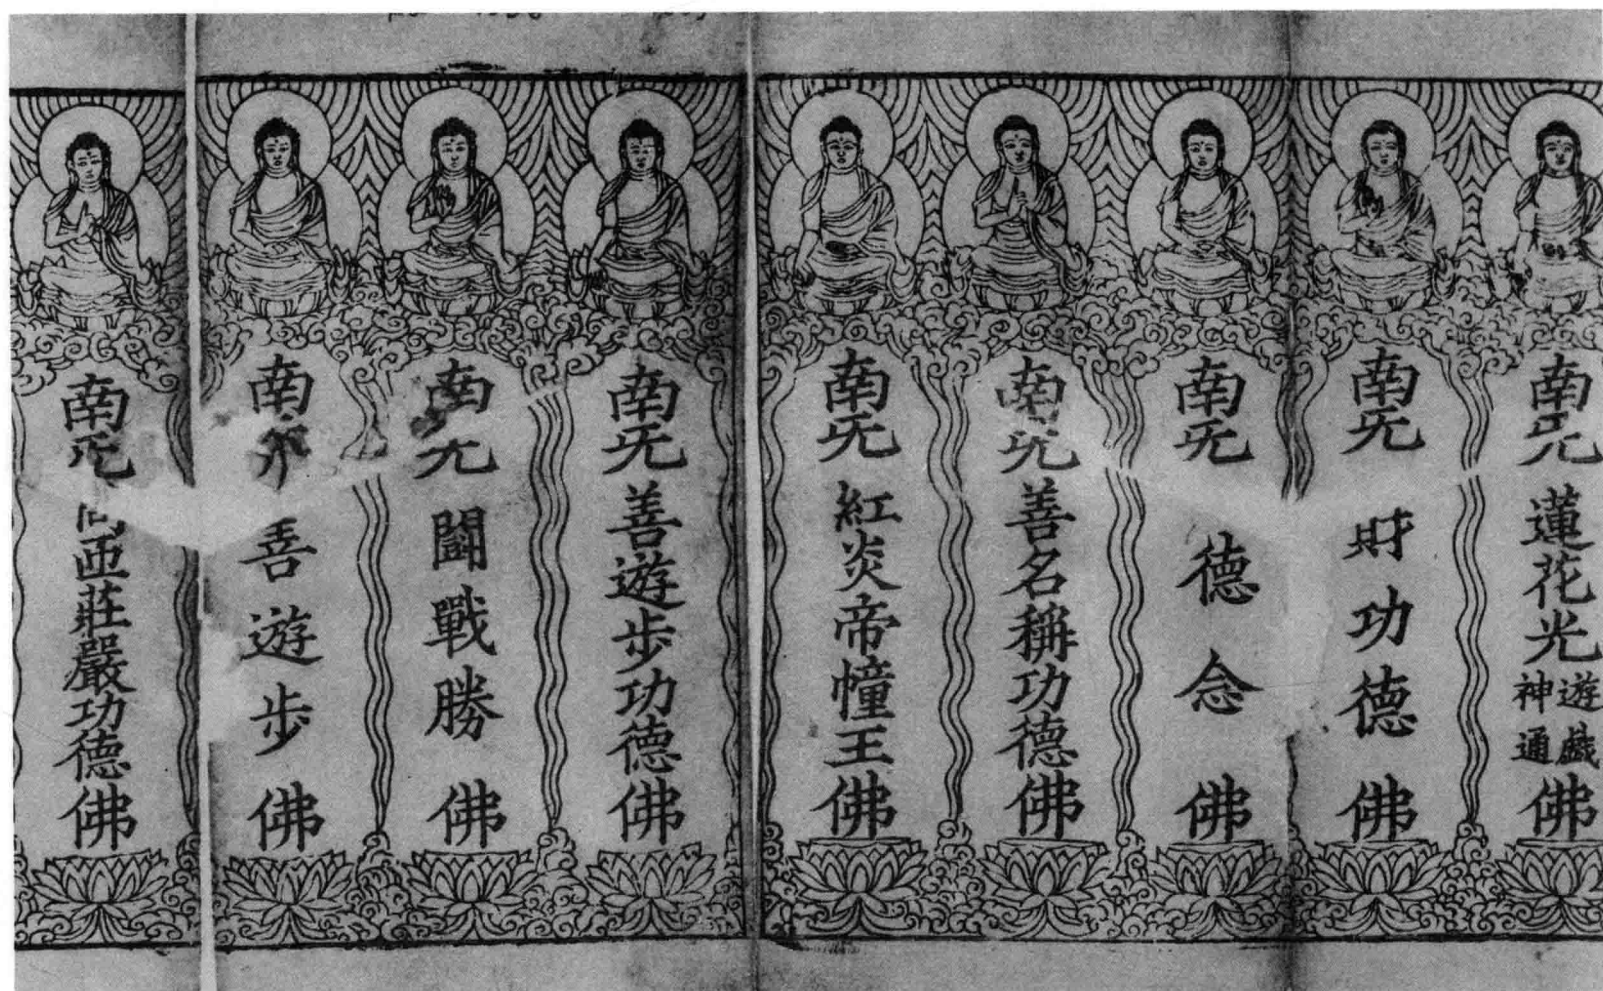 南无蓮花光遊戲神通佛
南无財功德佛
南无德念佛
南无善名稱功德佛
南无紅炎帝幢王佛
南无善遊步功德佛
南无闘戰勝佛
南无善遊步佛
南无匝莊嚴功德佛